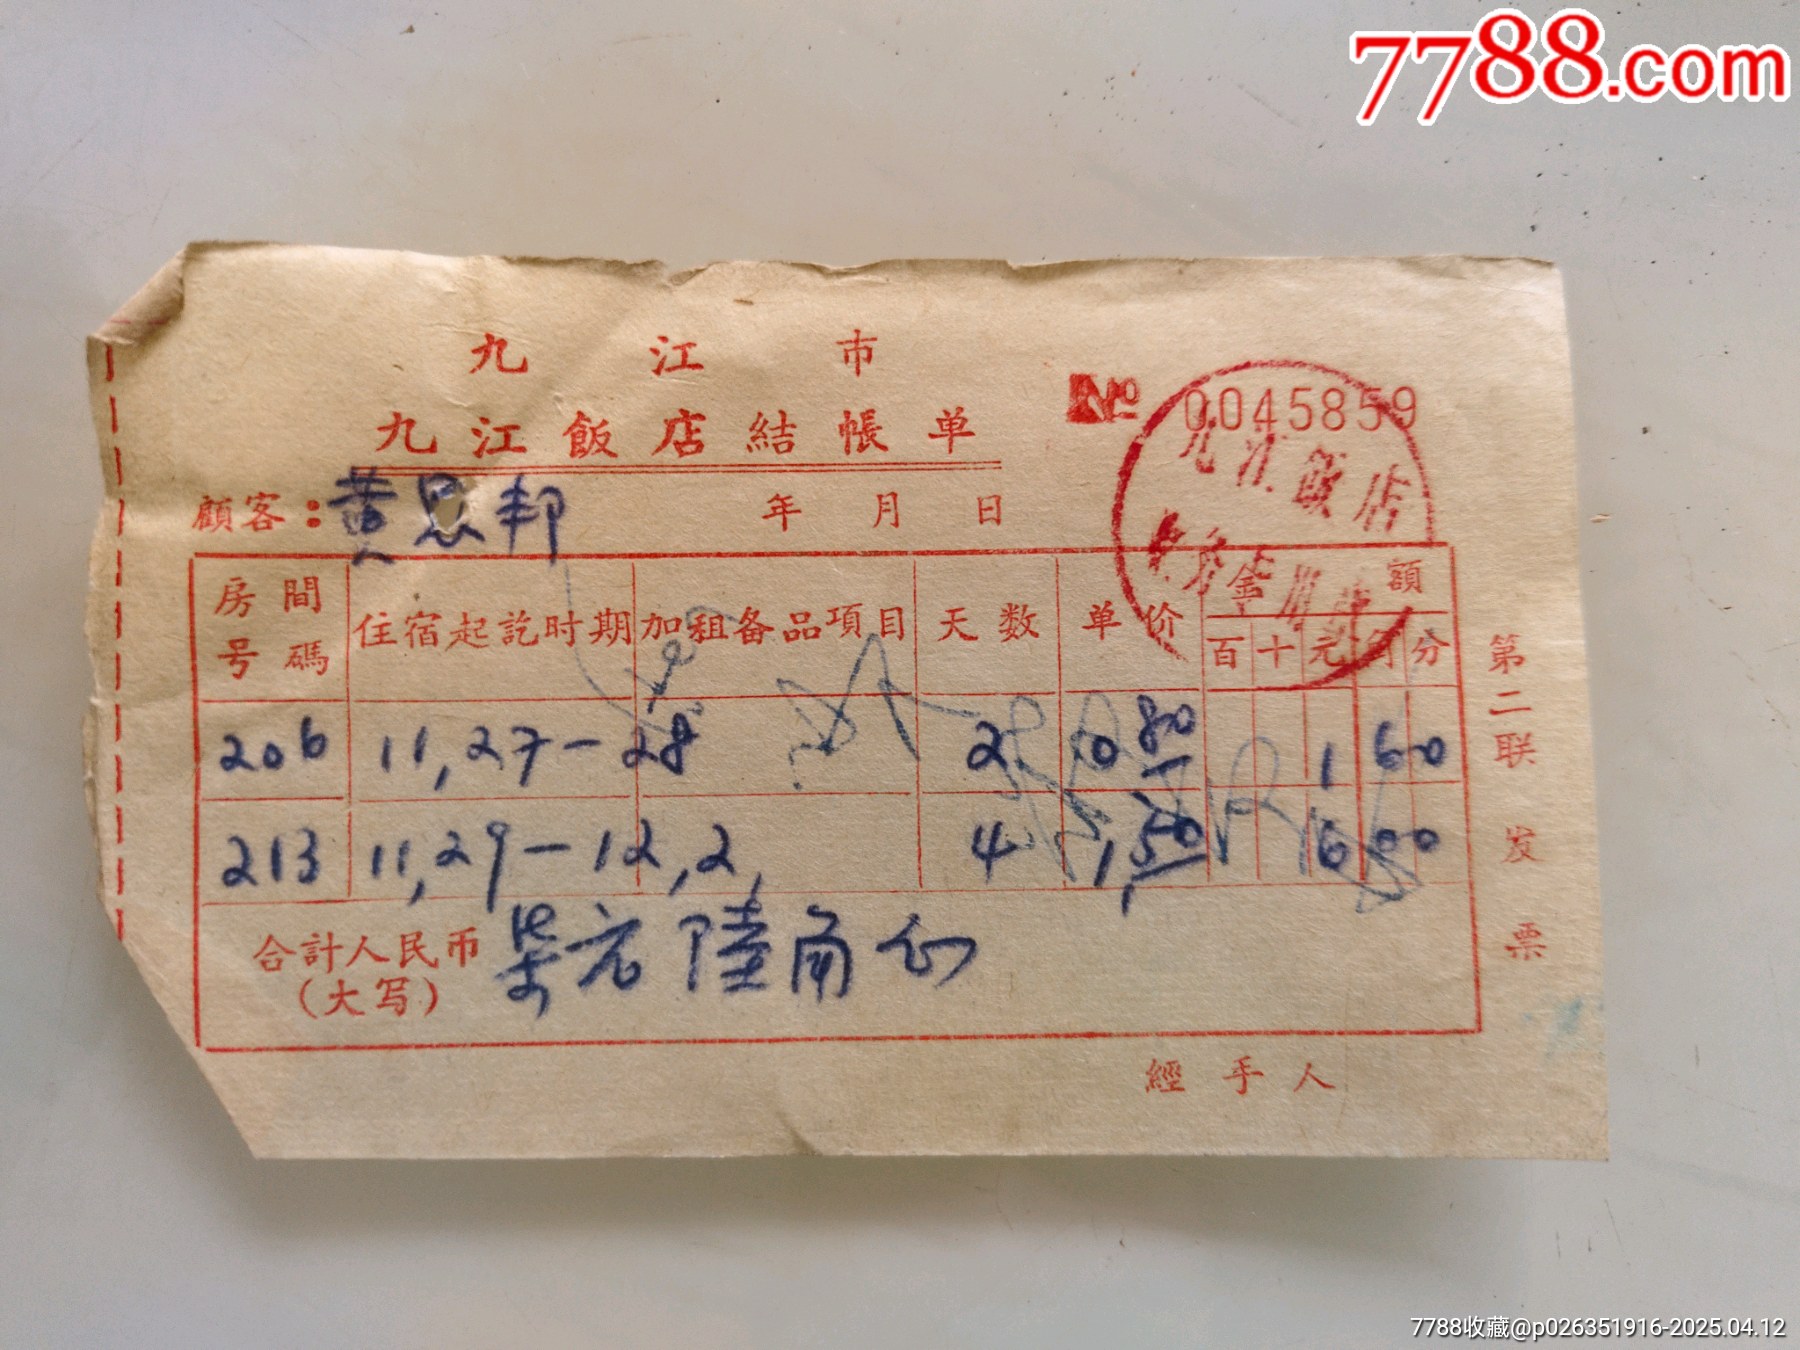 7788.com
九江市
九江飯店結帳单
№ 0045859
九江飯店
顧客：黄思邦
年 月 日
房間号碼 住宿起訖时期 加租备品項目 天数 单价 金額
百 十 元 角 分
206 11,27-28 2 0 80 1 60
213 11,29-12,2, 4 1,50 6 00
合計人民币(大写) 柒元陸角正
經手人
第二联 发票
7788收藏@p026351916-2025.04.12